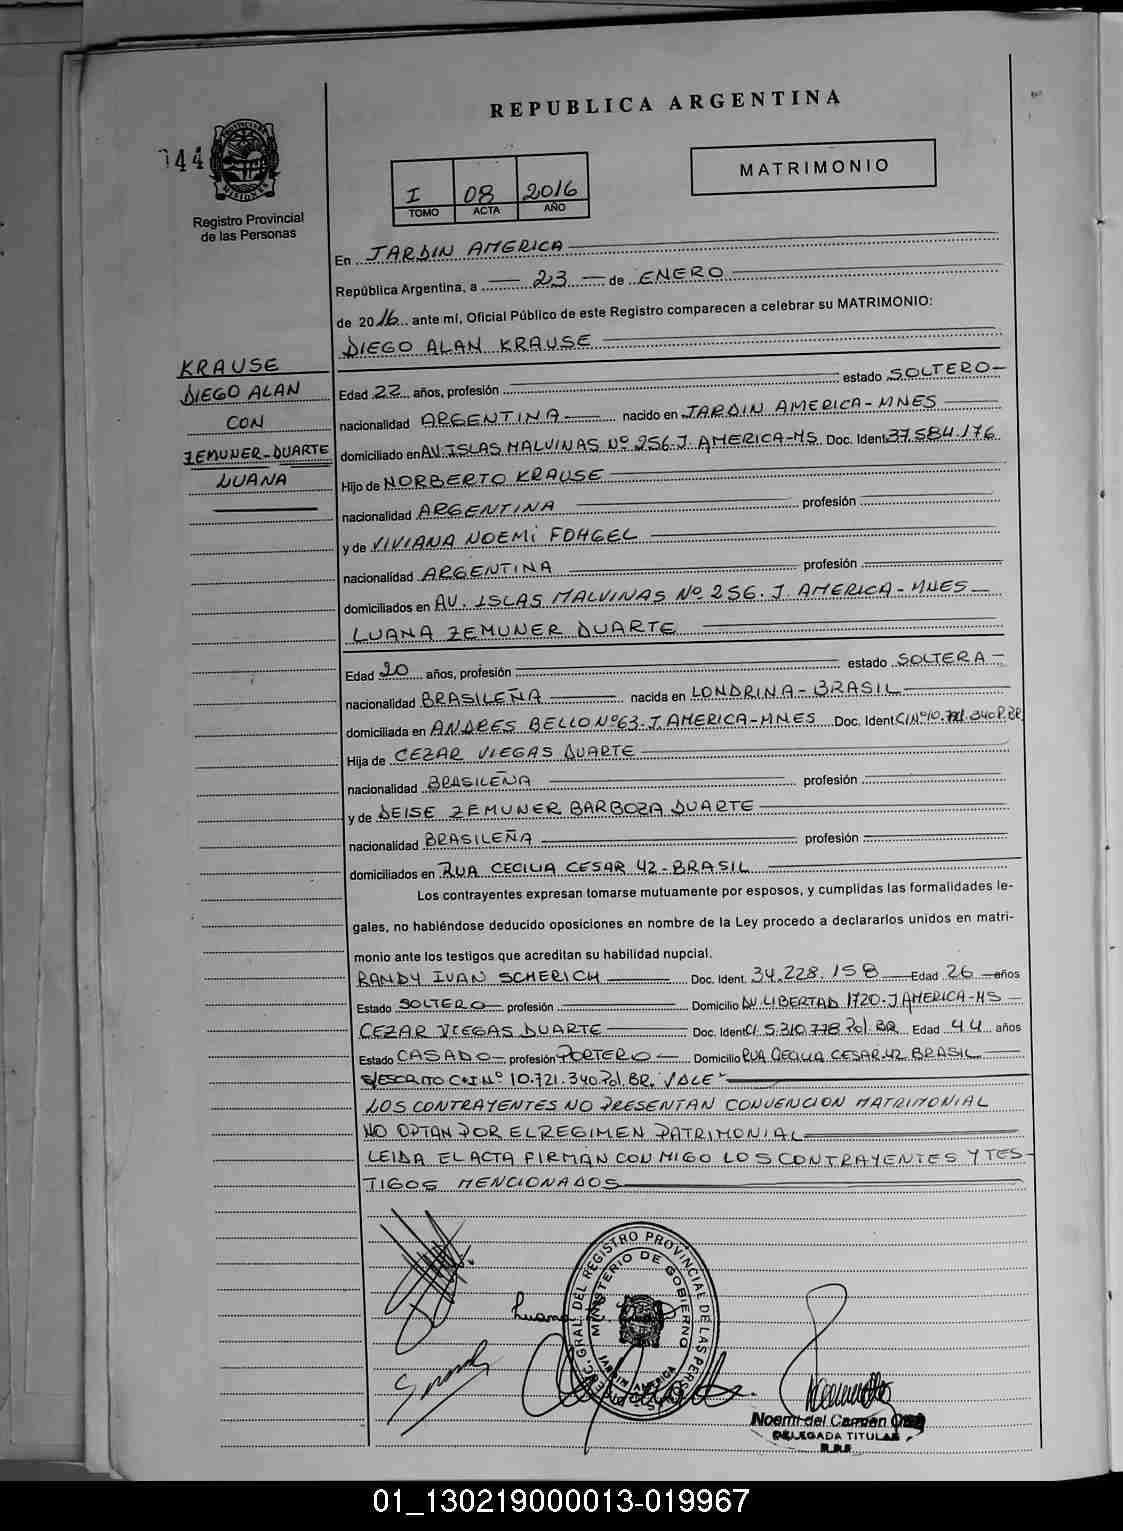 REPUBLICA ARGENTINA
44
PROVINCIA DE MISIONES
Registro Provincial
de las Personas
I 08 2016
TOMO ACTA AÑO
MATRIMONIO
En JARDIN AMERICA
República Argentina, a 23 de ENERO
de 2016 ante mí, Oficial Público de este Registro comparecen a celebrar su MATRIMONIO:
DIEGO ALAN KRAUSE
KRAUSE
DIEGO ALAN
CON
ZEMUNER-DUARTE
LUANA
Edad 22 años, profesión estado SOLTERO-
nacionalidad ARGENTINA nacido en JARDIN AMERICA-MNES
domiciliado en AV. ISLAS MALVINAS Nº 256-J. AMERICA-MS. Doc. Ident. 37.584.176
Hijo de NORBERTO KRAUSE
nacionalidad ARGENTINA profesión
y de VIVIANA NOEMI
nacionalidad ARGENTINA profesión
domiciliados en AV. ISLAS MALVINAS Nº 256. J. AMERICA-MNES
LUANA ZEMUNER DUARTE
Edad 20 años, profesión estado SOLTERA-
nacionalidad BRASILEÑA nacida en LONDRINA-BRASIL
domiciliada en ANDRES BELLO Nº63-J. AMERICA-MNES Doc. Ident. CI Nº10. 340 P.BR
Hija de CEZAR VIEGAS DUARTE
nacionalidad BRASILEÑA profesión
y de DEISE ZEMUNER BARBOZA DUARTE
nacionalidad BRASILEÑA profesión
domiciliados en RUA CECILIA CESAR 42-BRASIL
Los contrayentes expresan tomarse mutuamente por esposos, y cumplidas las formalidades le-
gales, no habiéndose deducido oposiciones en nombre de la Ley procedo a declararlos unidos en matri-
monio ante los testigos que acreditan su habilidad nupcial.
RANDY IVAN SCHERICH Doc. Ident. 34.228.158 Edad 26 años
Estado SOLTERO profesión Domicilio AV. LIBERTAD 1720-J AMERICA-MS
CEZAR VIEGAS DUARTE Doc. Ident CI 5.310.778 Pol. BR Edad 44 años
Estado CASADO- profesión PORTERO Domicilio RUA CECILIA CESAR 42 BRASIL
S/ESCRITO C.I Nº 10.721.340 Pol. BR. "VALE"
LOS CONTRAYENTES NO PRESENTAN CONVENCION MATRIMONIAL
NO OPTAN POR EL REGIMEN PATRIMONIAL
LEIDA EL ACTA FIRMAN CON MIGO LOS CONTRAYENTES Y TES-
TIGOS MENCIONADOS
GRAL. DEL REGISTRO PROVINCIAL DE LAS PERS
MINISTERIO DE GOBIERNO
JARDIN AMERICA
Luana
Noemi del Carmen
DELEGADA TITULAR
01_130219000013-019967